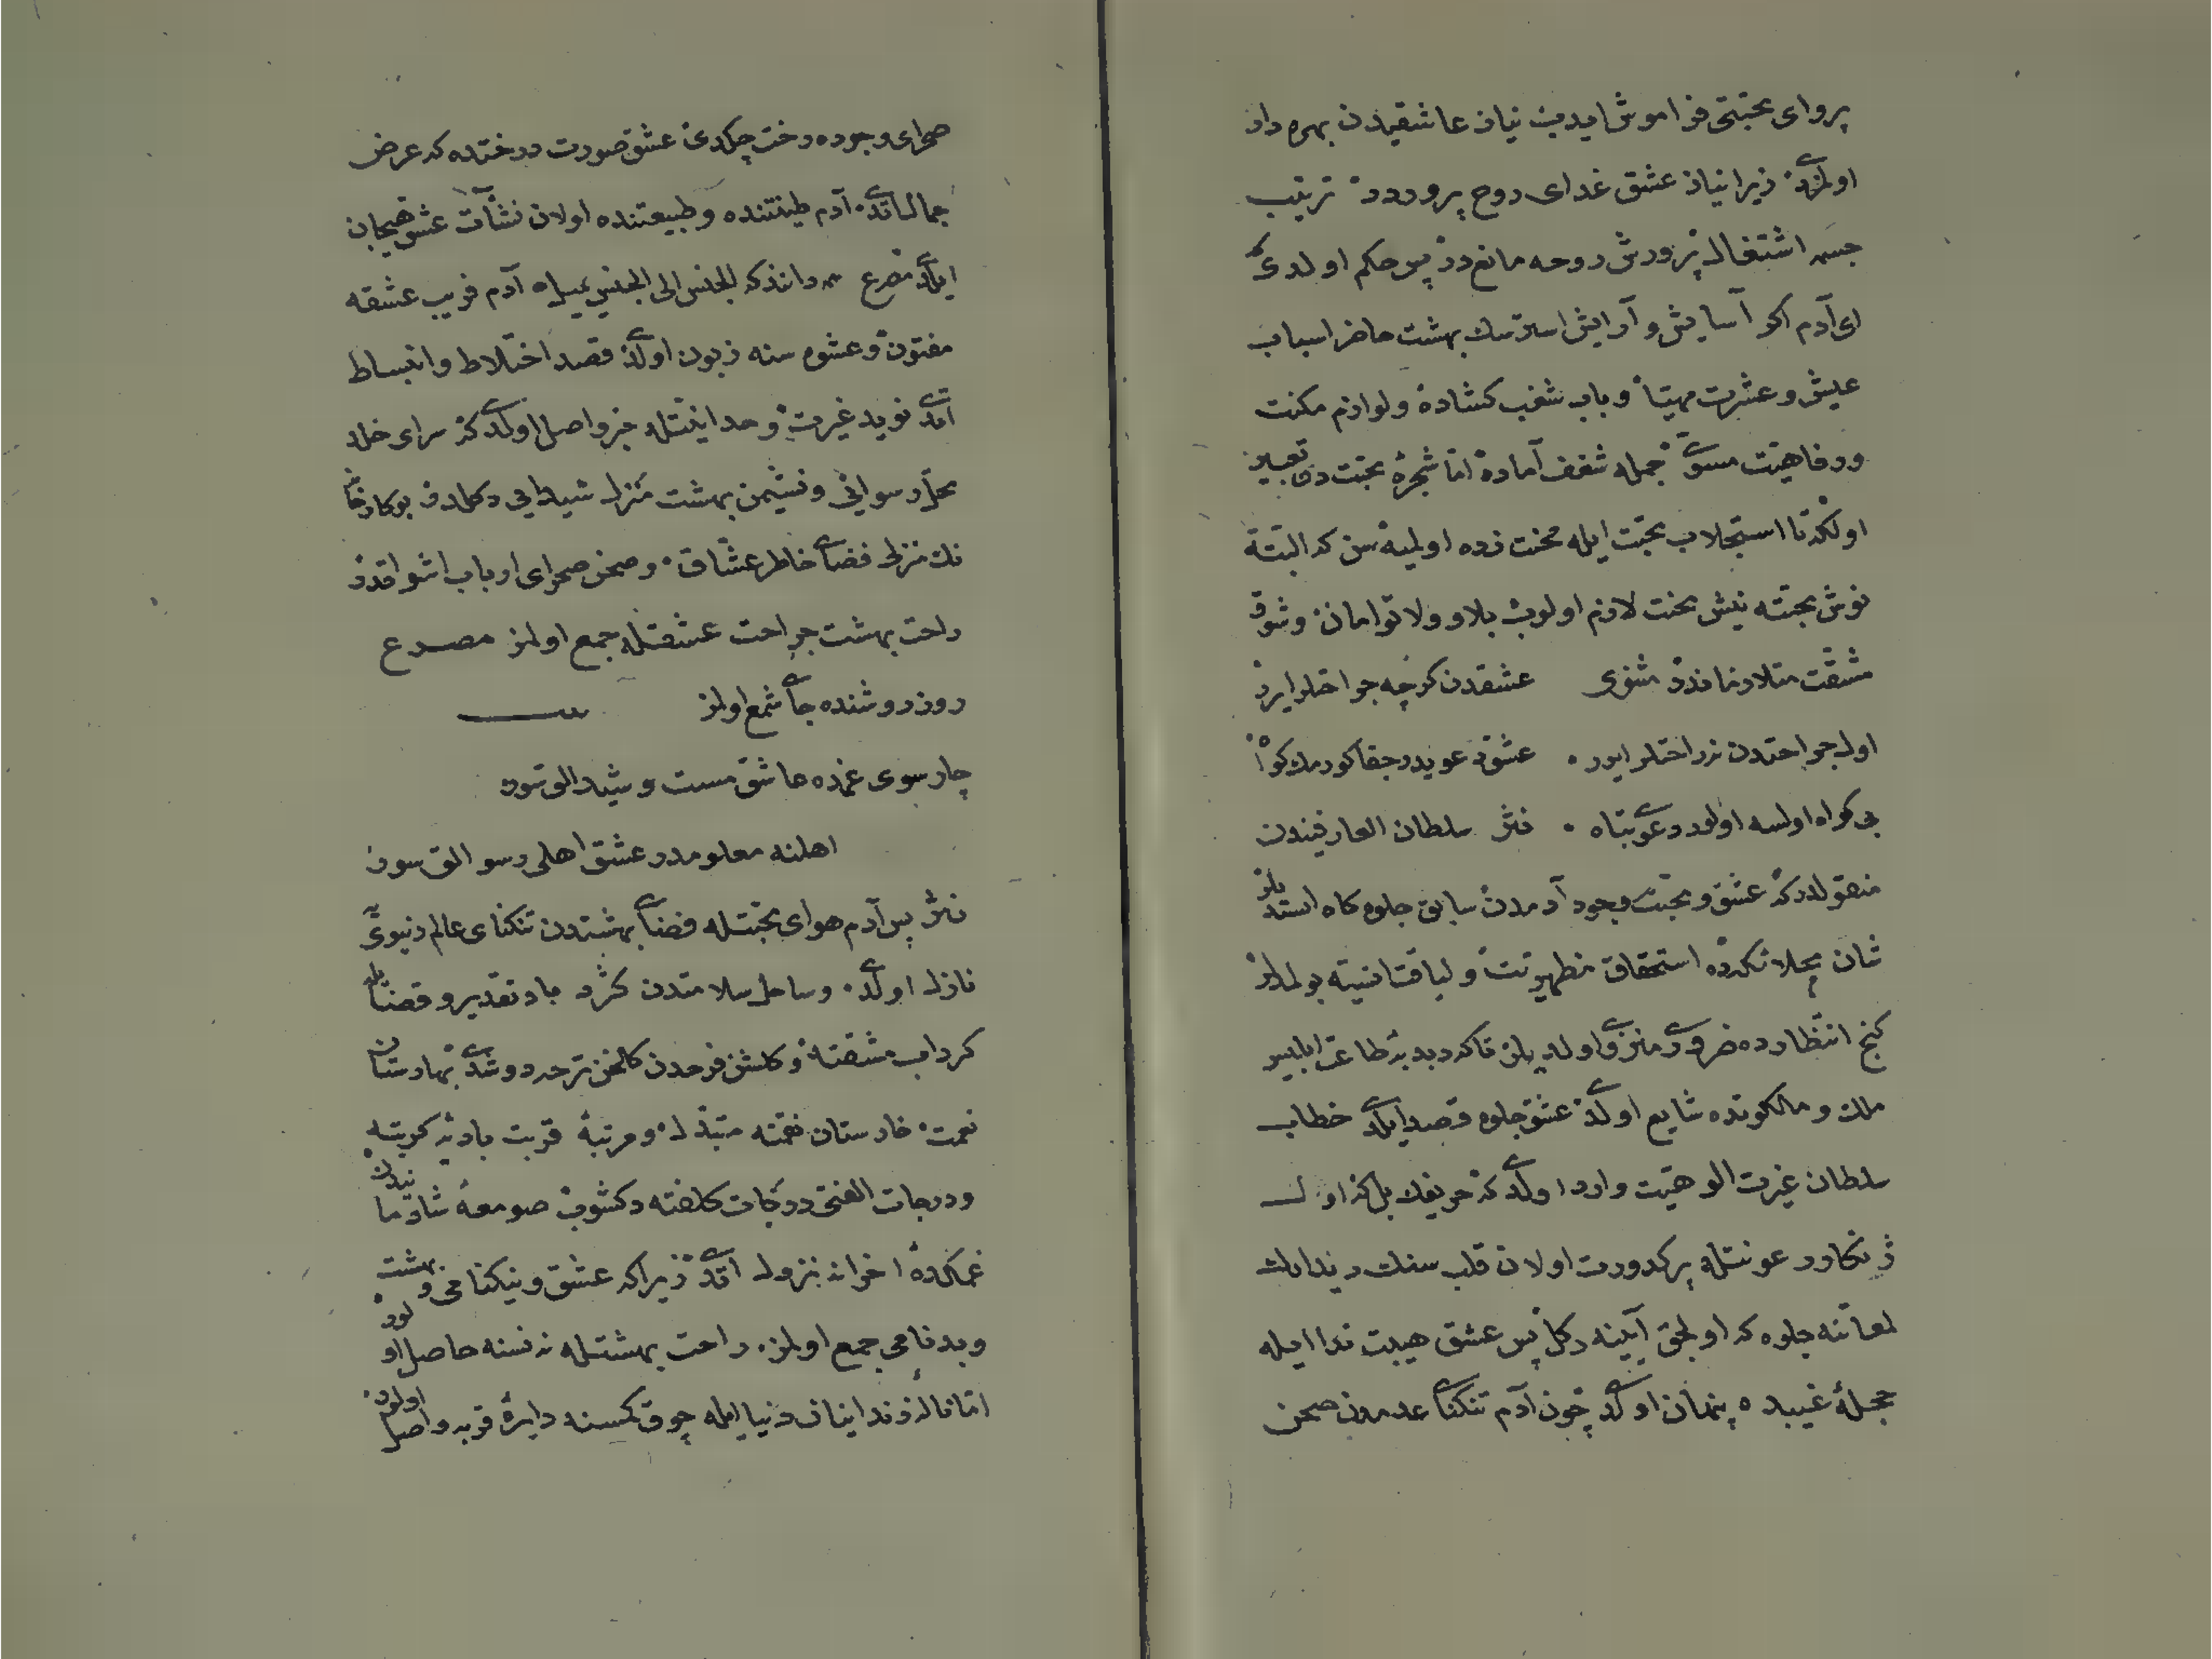 پروای محبتی فراموش ایدیب نیاز عاشقیدن بهره دار
اولمزدی زیرا نیاز عشق غدای روح پروردر ترتیب
جسمه اشتغال پرورش روحه مانع در پس حکم اولدی که
ای آدم اکر آسایش و آرایش استرسك بهشت حاضر اسباب
عیش و عشرت مهیا و باب شغب کشاده و لوازم مکنت
ورفاهیت مسوی جمله شغف آماده اما شجرۀ محبت دن تعبیر
اولنکدر تا استجلاب محبت ایله محنت زده اولمیه سن که البتة
نوش محبته نیش محنت لازم اولوب بلا و ولا توامان و شوق
مشقت متلازماندر مثنوی عشقدن کرچه جراحتلر ایرر
اول جراحتدن نه راحتلر ایرر عشق دعویدر جفا کورمك کواه
بی کواه اولسه اولور دعوی تباه نثر سلطان العارفیندن
منقولدر که عشق و محبت وجود آدمدن سابق جلوه کاه استدیلر
شان محلاتکرده استحقاق مظهریت و لیاقت امنیته بولمادیلر
کنج انتظارده ضروری منزوی اولدیلر تا که دبدبۀ طاعت ابلیس
ملك و ملکوتده شایع اولدی عشق جلوه قصد ایلدی خطاب
سلطان غیرت الوهیت وارد اولدی که حریفك بل که اول
ژنکار رعونتله پر کدورت اولان قلب سنك دیندارك
لمعاتنه جلوه که اولجق آیینه دکل پس عشق هیبت ندا ایله
حجلۀ غیبده پنهان اولدی چون آدم تنکنای عدمدن صحن
صحرای وجوده رخت چکدی عشق صورت درختده که عرض
جمال اتدی آدم طینتنده و طبیعتنده اولان نشأت عشق هیجان
ایلدی مصرع دانند که الجنس الی الجنس یمیل آدم فریب عشقه
مفتون و عشوه سنه زبون اولدی قصد اختلاط و انبساط
اتدی نوید غیرت وحدانیتله خبر واصل اولدی که سرای خلد
محل رسوائی و نشیمن بهشت منزل شیدایی دکلدر بو کارخا
نك منزلی فضای خاطر عشاق و صحن صحرای ارباب اشواقدر
راحت بهشت جراحت عشقله جمع اولمز مصرع
روز روشنده جای شمع اولمز
چارسوی غمده عاشق مست و شیدالق سور
اهلنه معلومدر عشق اهلی رسوالق سور
نثر پس آدم هوای محبتله فضای بهشتدن تنکنای عالم دنیوی یه
نازل اولدی و ساحل سلامتدن کرد باد تقدیر و قضایله
کرداب مشقته و کلشن فرحدن کلخن ترحه دوشدی بهارستان
نعمت خارستان نقمته متبدل و مرتبۀ قربت بادیۀ کربته
و درجات الفتی درکات کلفته دکشوب صومعۀ شادمانیدن
غمکدۀ احزانه نزول اتدی زیرا که عشق و نیکنامی و بهشت
و بدنامی جمع اولمز راحت بهشتله نه نسنه حاصل اولور
اما نالۀ زندانیان دنیا ایله چوق کمسنه دایرۀ قربه واصل اولور